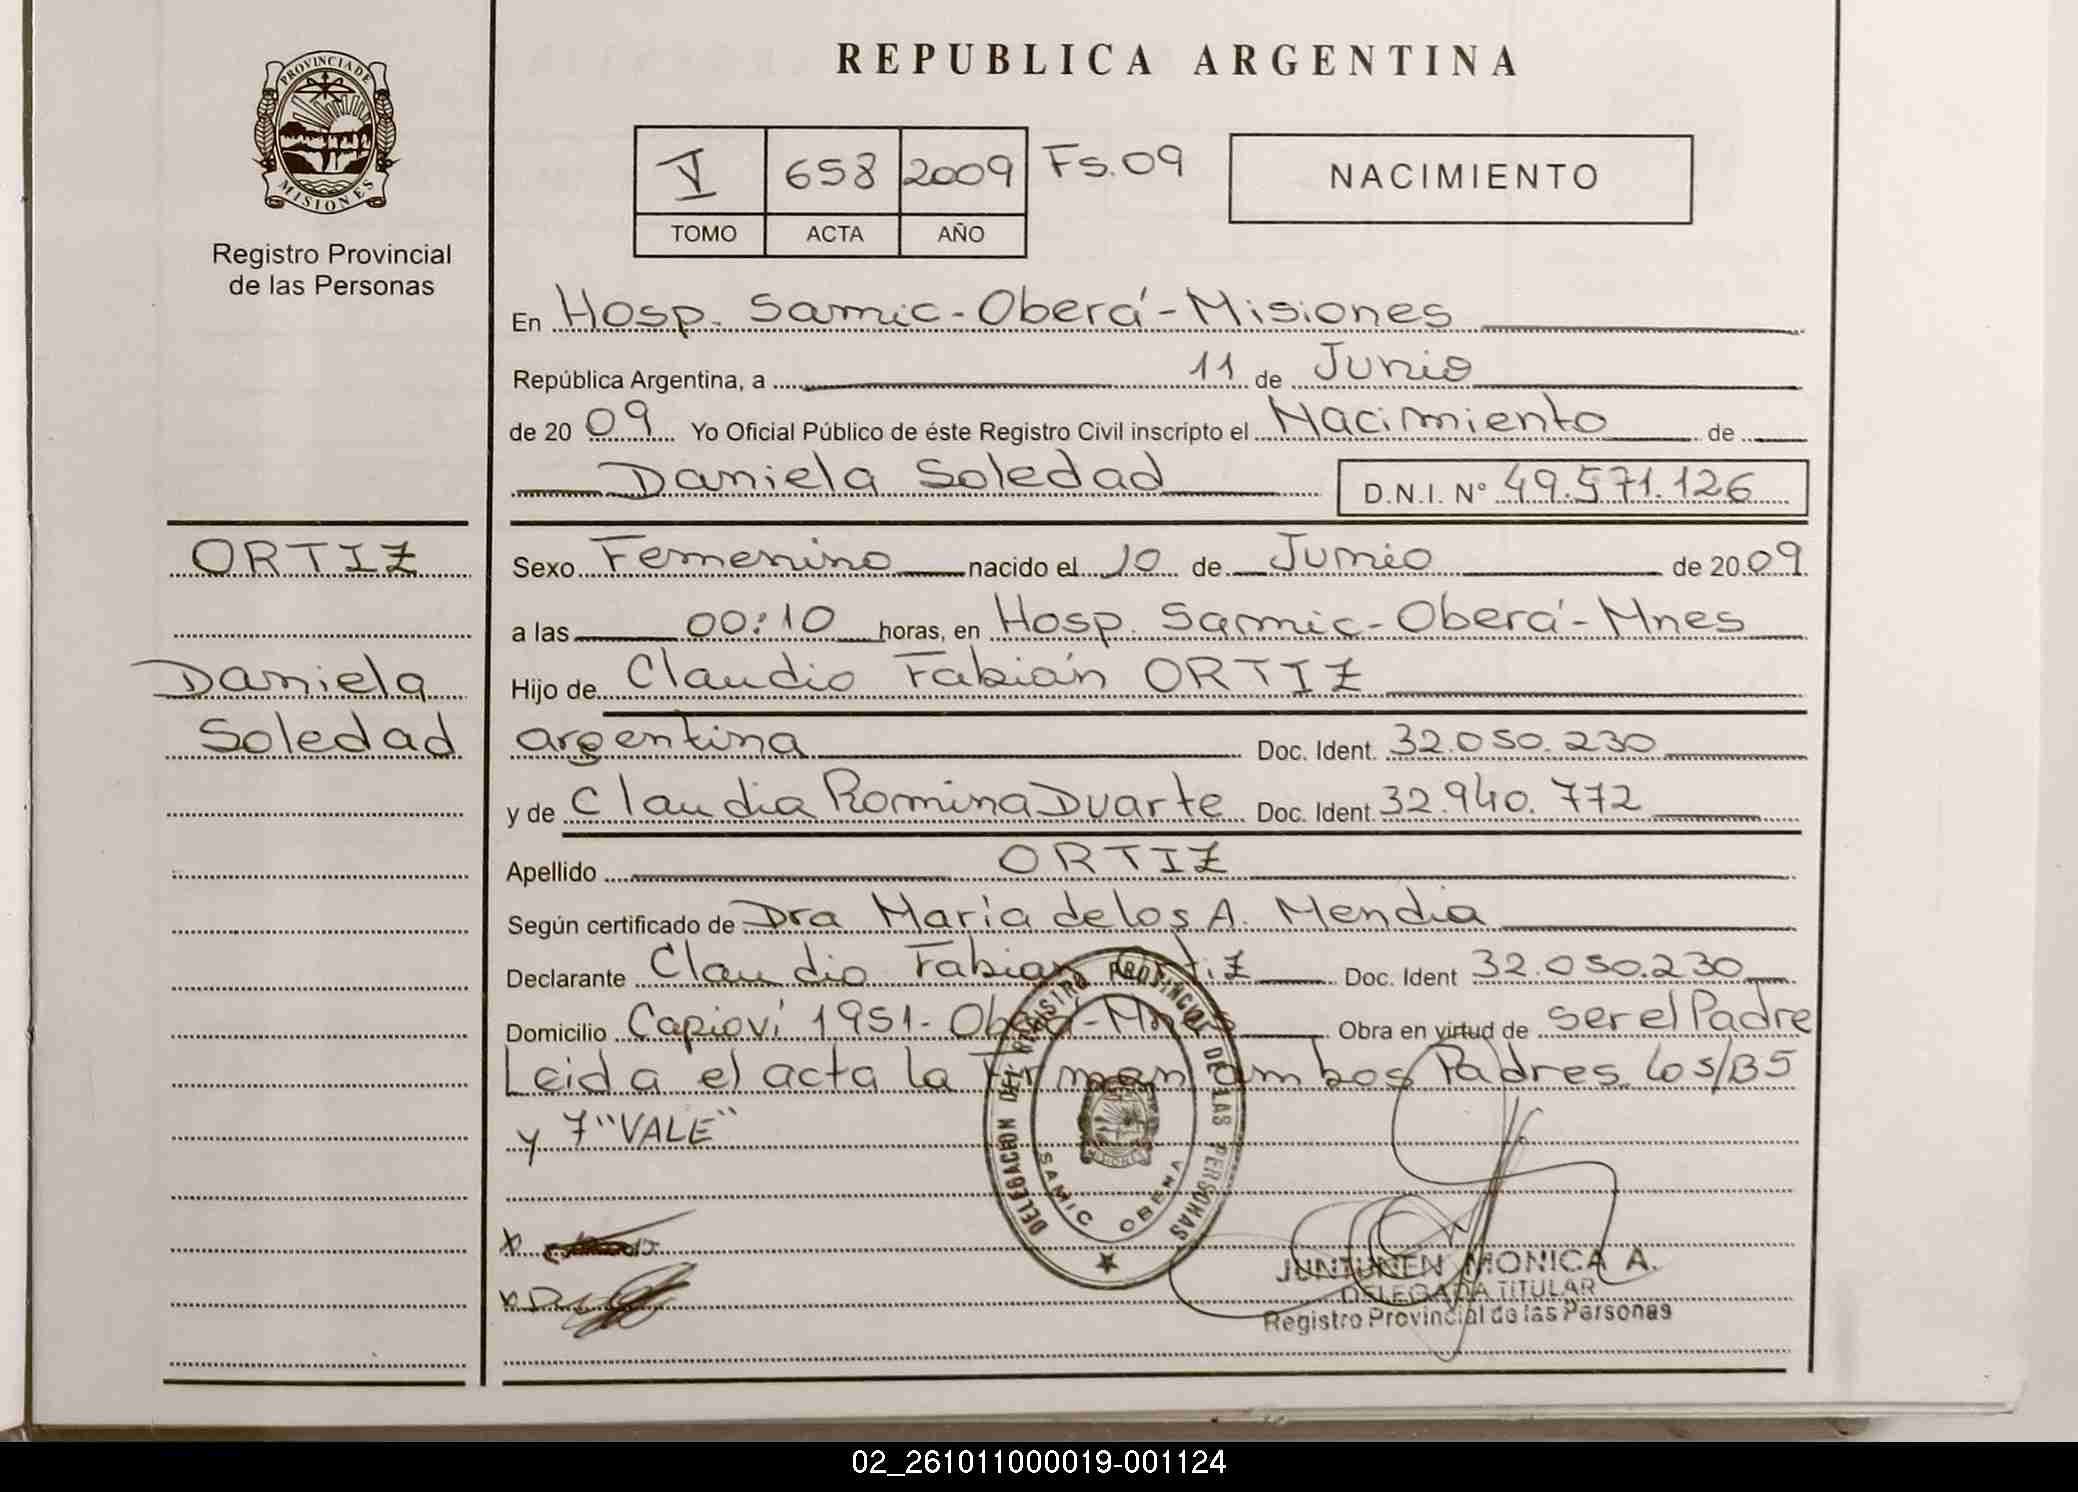 PROVINCIA DE
MISIONES
Registro Provincial
de las Personas
REPUBLICA ARGENTINA
V 658 2009 Fs.09
TOMO ACTA AÑO
NACIMIENTO
En Hosp. Samic-Oberá-Misiones
República Argentina, a 11 de Junio
de 20 09 Yo Oficial Público de éste Registro Civil inscripto el Nacimiento de
Daniela Soledad D.N.I. N° 49.571.126
ORTIZ
Daniela
Soledad
Sexo Femenino nacido el 10 de Junio de 20 09
a las 00:10 horas, en Hosp. Samic-Oberá-Mnes
Hijo de Claudio Fabián ORTIZ
argentina Doc. Ident. 32.050.230
y de Claudia Romina Duarte Doc. Ident 32.940.772
Apellido ORTIZ
Según certificado de Dra María de los A. Mendia
Declarante Claudio Fabian Ortiz Doc. Ident 32.050.230
Domicilio Capioví 1951- Oberá-Mnes Obra en virtud de ser el Padre
Leida el acta la Firman ambos Padres. Los/B5
y 7 "VALE"
DELEGACION DEL REGISTRO PROVINCIAL DE LAS PERSONAS
SAMIC OBERA
JUNTUNEN MONICA A.
DELEGADA TITULAR
Registro Provincial de las Personas
02_261011000019-001124